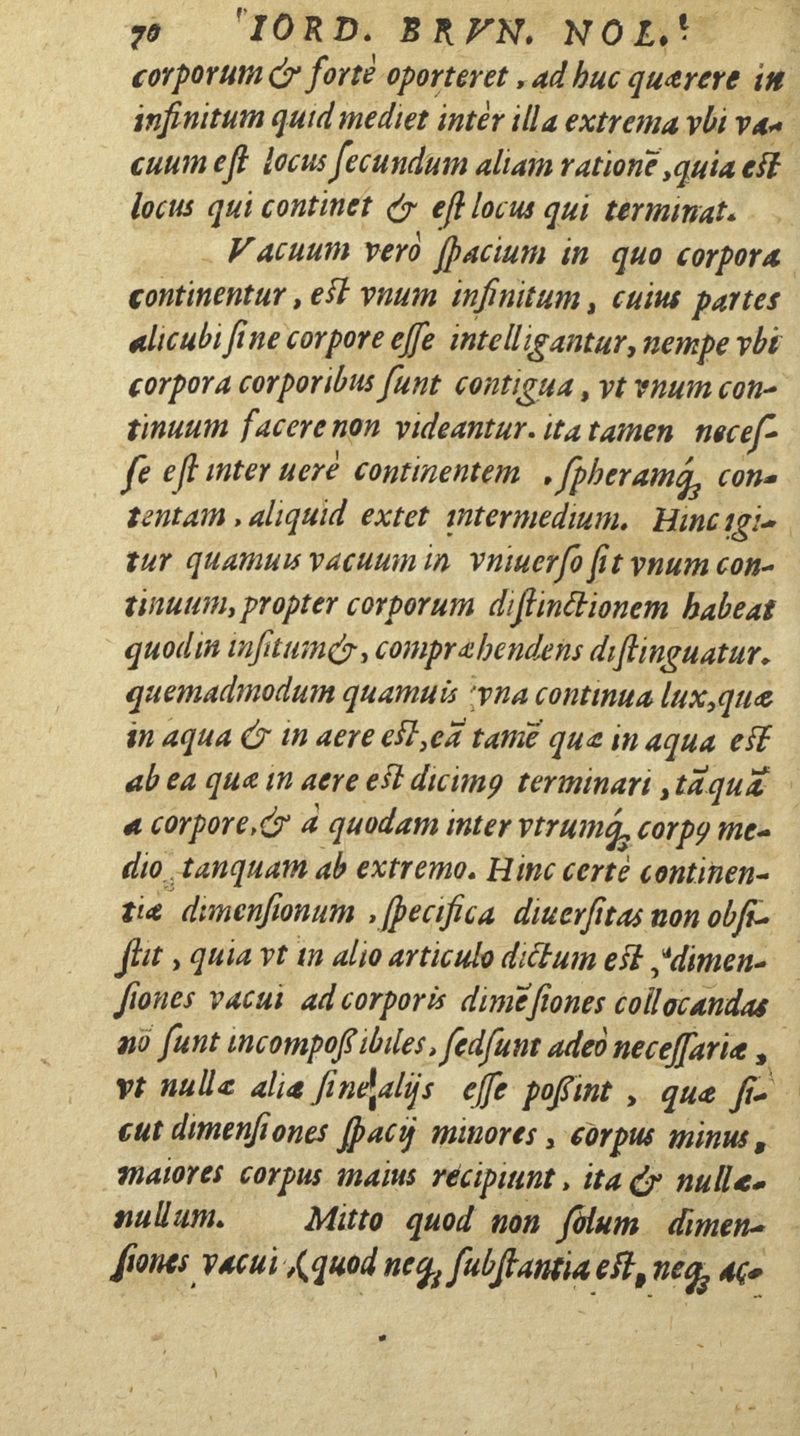 70 IORD. BRVN. NOL.
corporum & fortè oporteret, ad huc quærere in
infinitum quid mediet intèr illa extrema vbi va-
cuum est locus secundum aliam rationē, quia est
locus qui continet & est locus qui terminat.
Vacuum verò spacium in quo corpora
continentur, est vnum infinitum, cuius partes
alicubi sine corpore esse intelligantur, nempe vbi
corpora corporibus sunt contigua, vt vnum con-
tinuum facere non videantur. ita tamen neces-
se est inter uerè continentem, spheramq́; con-
tentam, aliquid extet intermedium. Hinc igi-
tur quamuis vacuum in vniuerso sit vnum con-
tinuum, propter corporum distinctionem habeat
quod in insitum &, compræhendens distinguatur.
quemadmodum quamuis vna continua lux, quæ
in aqua & in aere est, eā tamē quæ in aqua est
ab ea quæ in aere est dicimꝰ terminari, tāquā
a corpore, & à quodam inter vtrumq́; corpꝰ me-
dio tanquam ab extremo. Hinc certè continen-
tiæ dimensionum, specifica diuersitas non obsi-
stit, quia vt in alio articulo dictum est, dimen-
siones vacui ad corporis dimēsiones collocandas
nō sunt incompossibiles, sed sunt adeò necessariæ,
vt nullæ aliæ sine alijs esse possint, quæ si-
cut dimensiones spacij minores, corpus minus,
maiores corpus maius recipiunt, ita & nullæ
nullum. Mitto quod non solum dimen-
siones vacui (quod neq; substantia est, neq; ac-